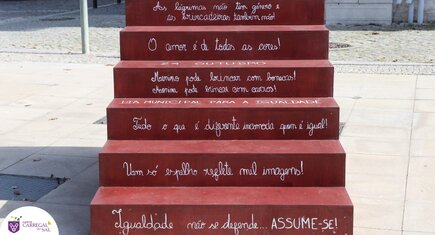 As lágrimas não têm género e
as brincadeiras também não!
O amor é de todas as cores!
24 OUTUBRO
Menino pode brincar com bonecas!
Menina pode brincar com carros!
DIA MUNICIPAL PARA A IGUALDADE
Tudo o que é diferente incomoda quem é igual!
Um só espelho reflete mil imagens!
Igualdade não se defende... ASSUME-SE!
CARREGAL
DO SAL